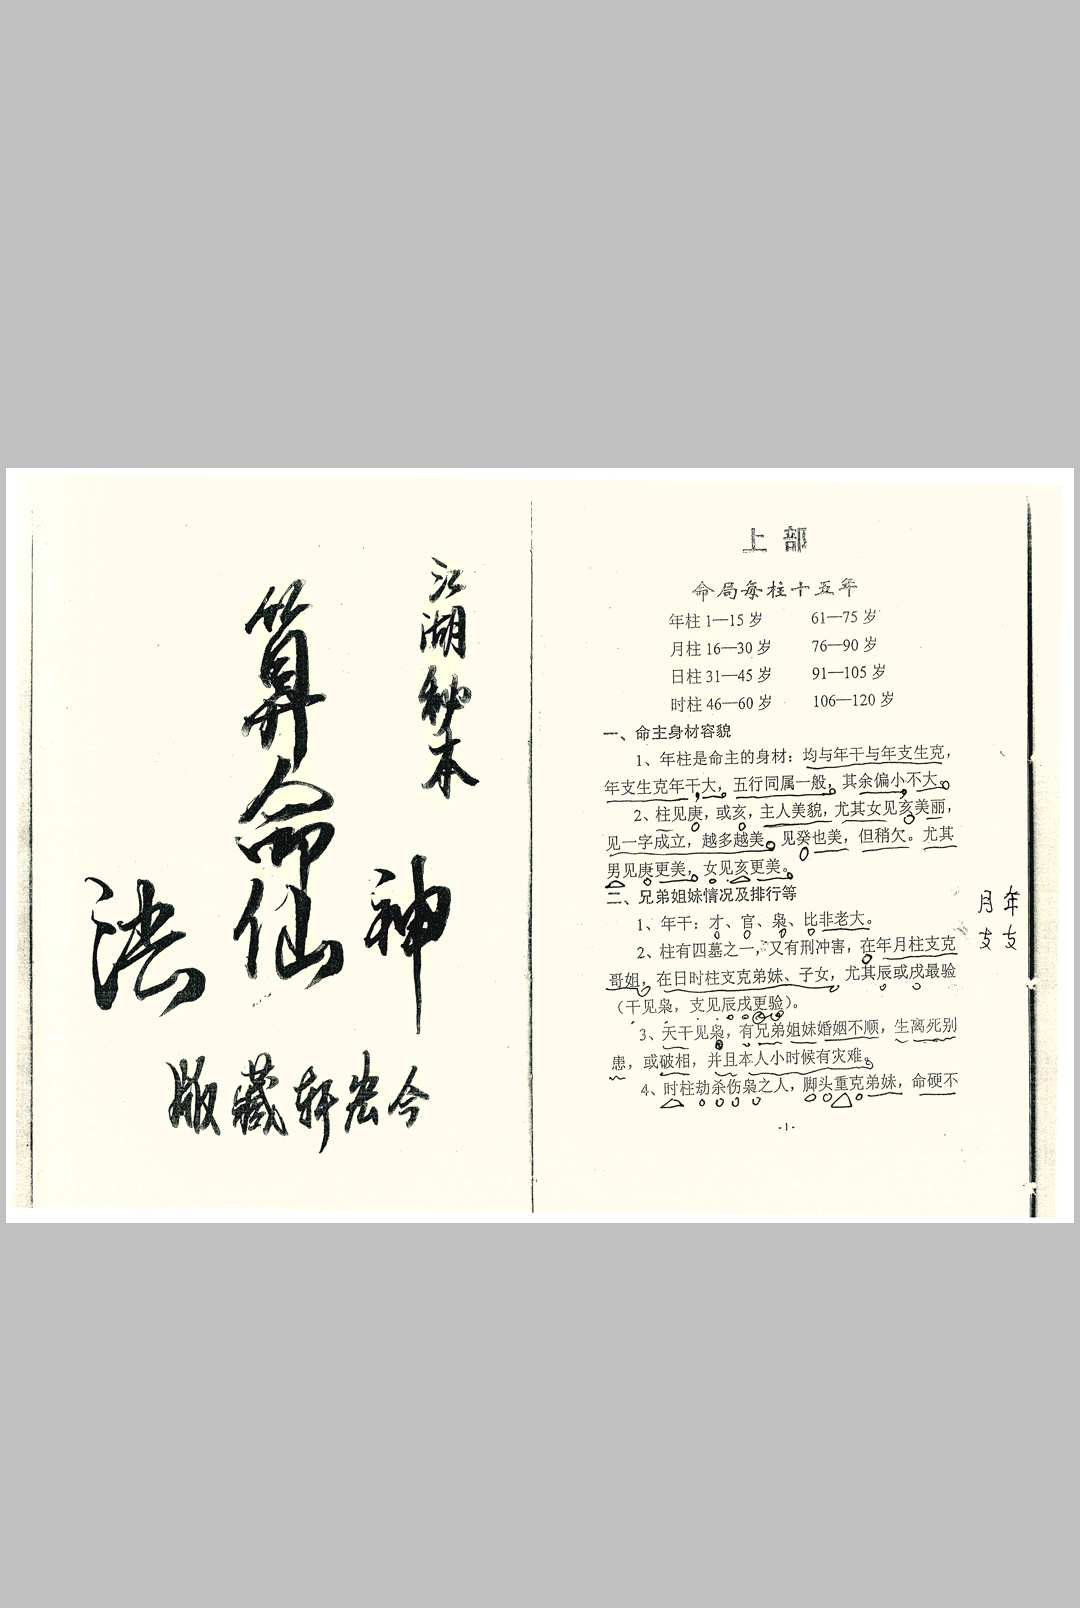 江湖秘本
算命
神仙法
今岩轩藏版
上部
命局每柱十五年
年柱 1—15 岁 61—75 岁
月柱 16—30 岁 76—90 岁
日柱 31—45 岁 91—105 岁
时柱 46—60 岁 106—120 岁
一、命主身材容貌
1、年柱是命主的身材：均与年干与年支生克，
年支生克年干大，五行同属一般，其余偏小不大。
2、柱见庚，或亥，主人美貌，尤其女见亥美丽，
见一字成立，越多越美。见癸也美，但稍欠。尤其
男见庚更美，女见亥更美。
二、兄弟姐妹情况及排行等
1、年干：才、官、枭、比非老大。
2、柱有四墓之一，又有刑冲害，在年月柱支克
哥姐，在日时柱支克弟妹、子女，尤其辰或戌最验
（干见枭，支见辰戌更验）。
3、天干见枭，有兄弟姐妹婚姻不顺，生离死别
患，或破相，并且本人小时候有灾难。
4、时柱劫杀伤枭之人，脚头重克弟妹，命硬不
-1-
年支
月支